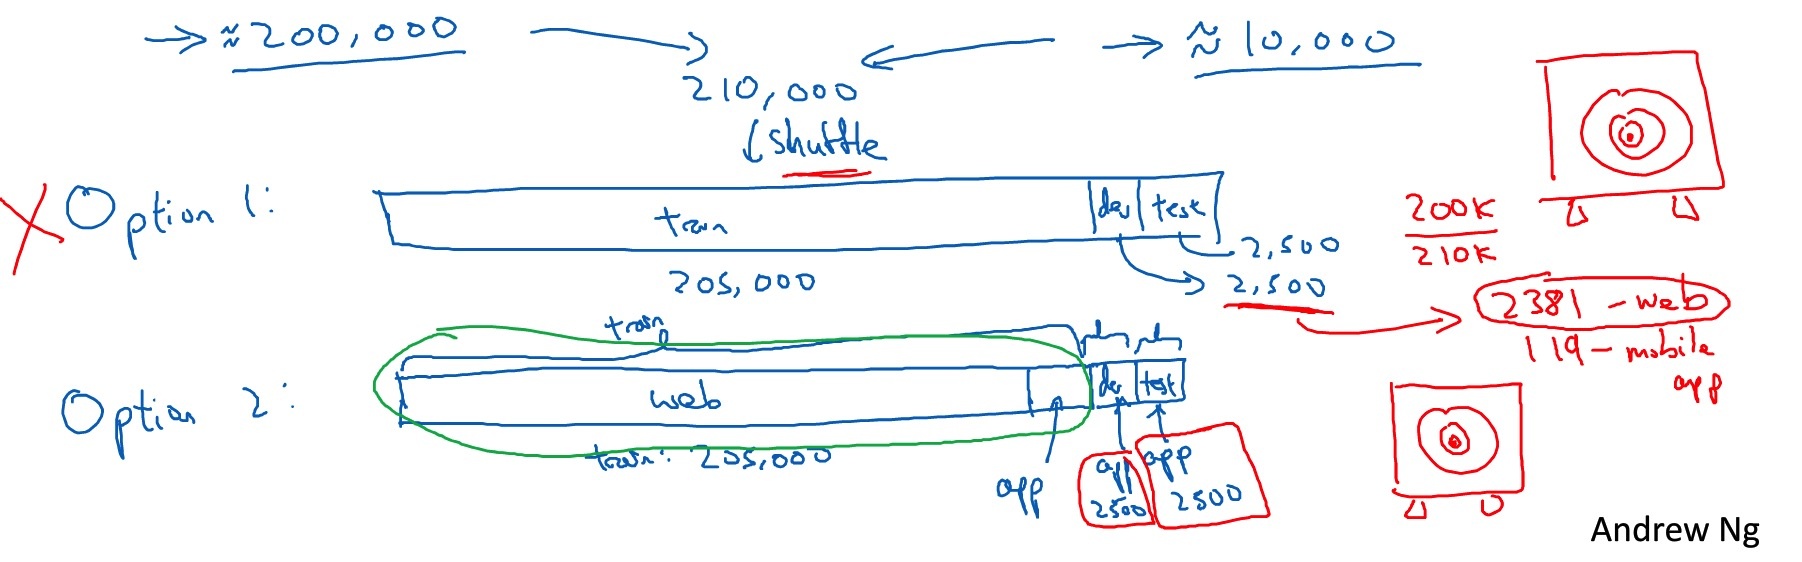 → ≈ 200,000 → ← → ≈ 10,000
210,000
↓ shuffle
X Option 1:
train dev test
205,000
2,500
2,500
200K
210K
2381 - web
119 - mobile
app
train
Option 2:
web dev test
train: 205,000
app
app
2500
app
2500
Andrew Ng